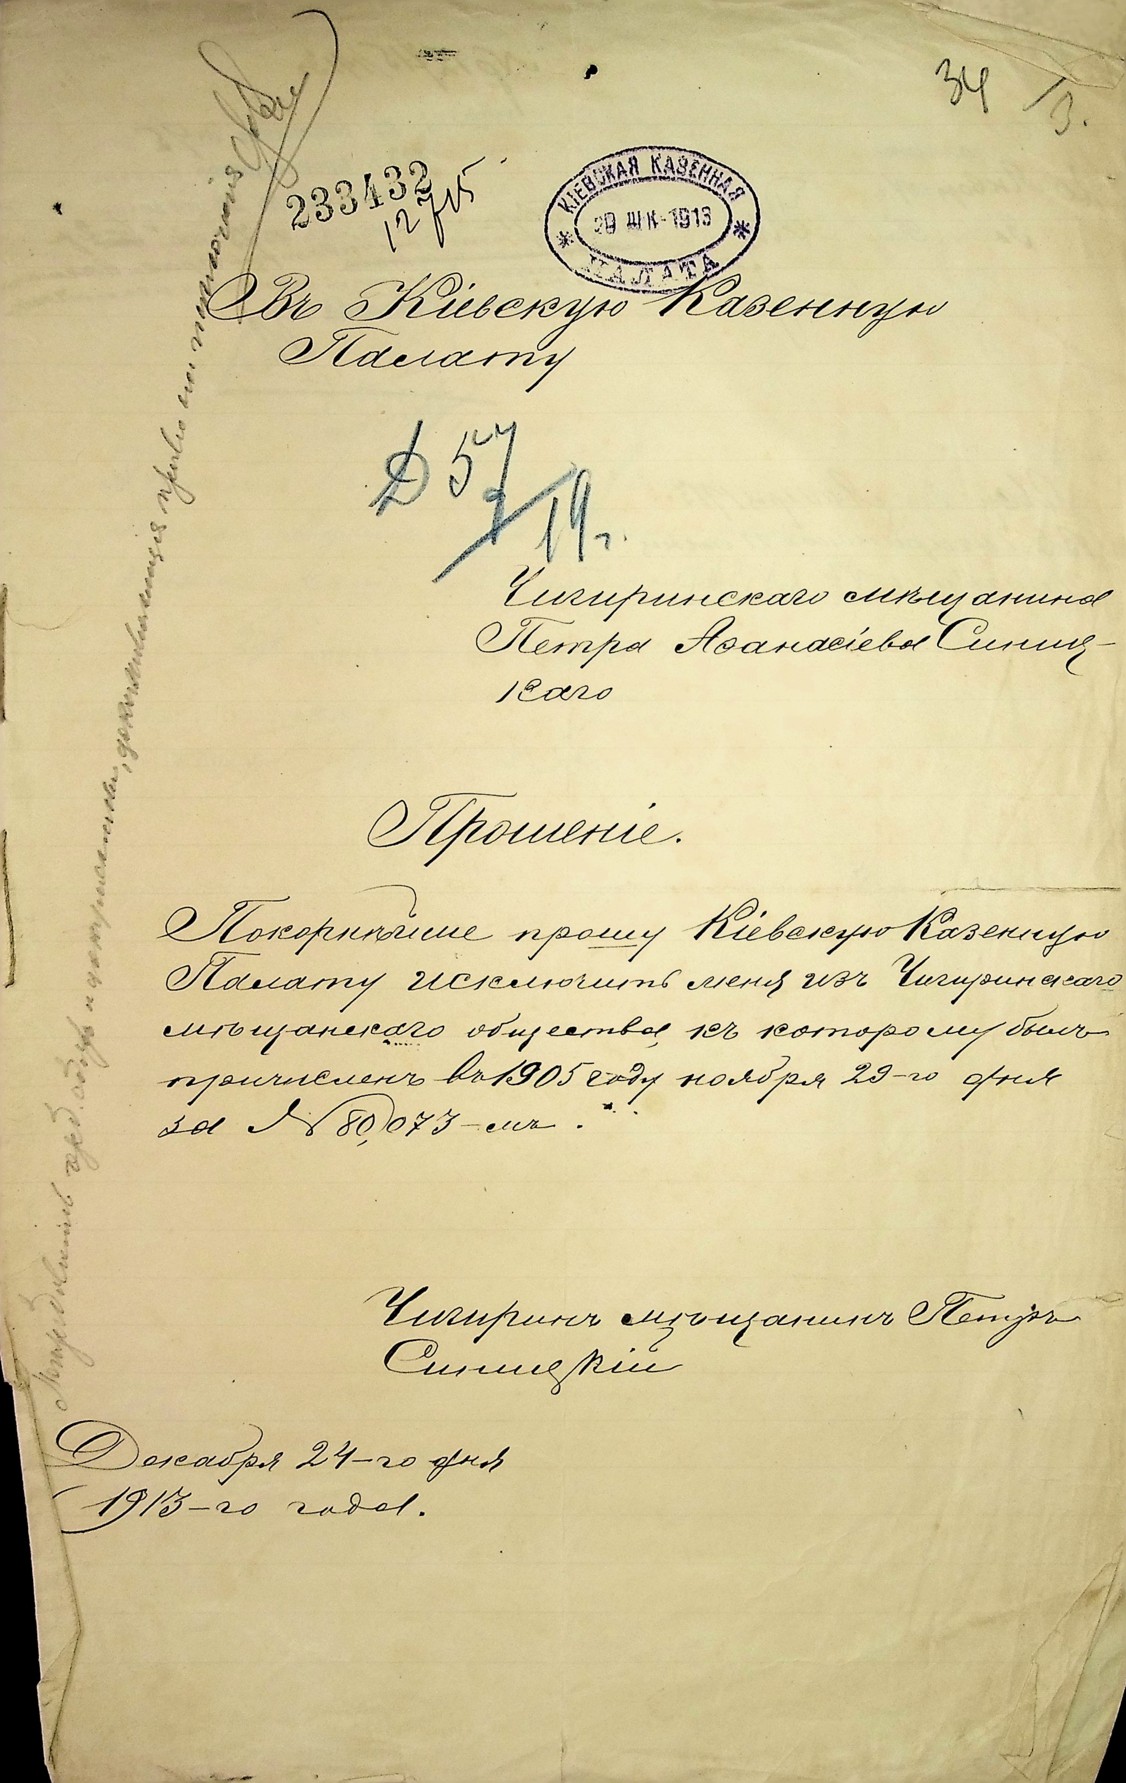 34
233432
КІЕВСКАЯ КАЗЕННАЯ
1913
ПАЛАТА
Въ Кіевскую Казенную
Палату
Д 57/19г.
Чигиринскаго мѣщанина
Петра Аѳанасіева Синиц-
каго
Прошеніе.
Покорнѣйше прошу Кіевскую Казенную
Палату исключить меня изъ Чигиринскаго
мѣщанскаго общества, къ которому былъ
причисленъ въ 1905 году ноября 29-го дня
за № 80,073-мъ.
Чигирин. мѣщанинъ Петръ
Синицкій
Декабря 24-го дня
1913-го года.